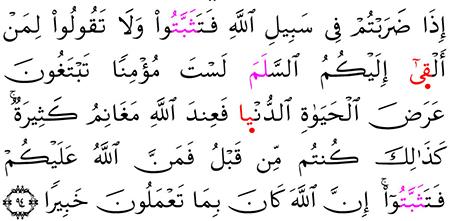 إِذَا ضَرَبْتُمْ فِى سَبِيلِ ٱللَّهِ فَتَثَبَّتُوا۟ وَلَا تَقُولُوا۟ لِمَنْ
أَلْقَىٰٓ إِلَيْكُمُ ٱلسَّلَمَ لَسْتَ مُؤْمِنًا تَبْتَغُونَ
عَرَضَ ٱلْحَيَوٰةِ ٱلدُّنْيا فَعِندَ ٱللَّهِ مَغَانِمُ كَثِيرَةٌ ۚ
كَذَٰلِكَ كُنتُم مِّن قَبْلُ فَمَنَّ ٱللَّهُ عَلَيْكُمْ
فَتَثَبَّتُوٓا۟ ۚ إِنَّ ٱللَّهَ كَانَ بِمَا تَعْمَلُونَ خَبِيرًا ٩٤